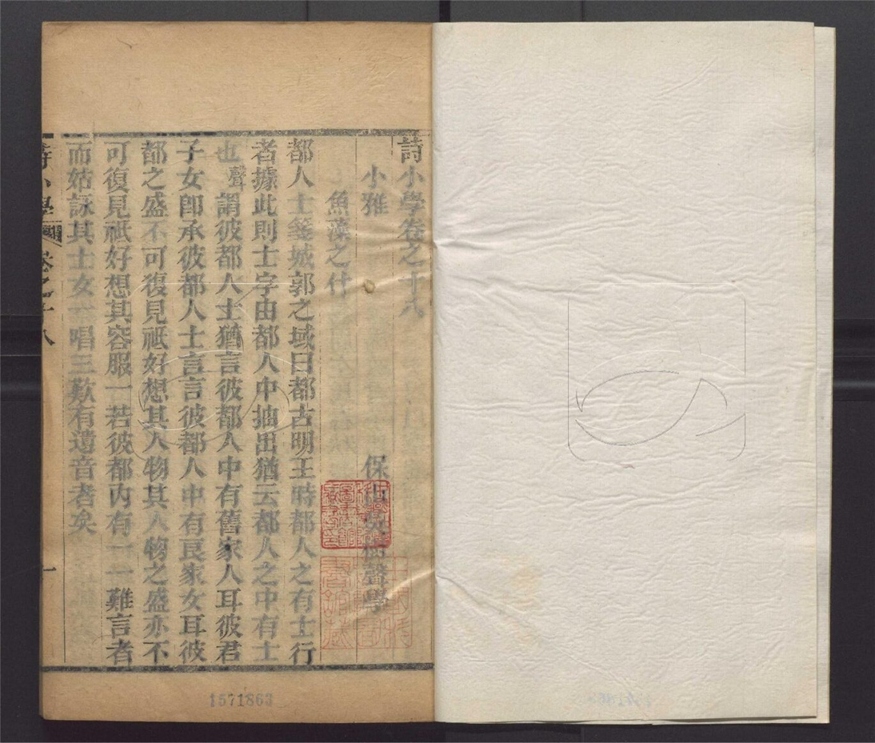 詩小學卷之十八
小雅
保山吳樹聲學
魚藻之什
都人士箋城郭之域曰都古明王時都人之有士行
者據此則士字由都人中抽出猶云都人之中有士
也聲謂彼都人士猶言彼都人中有舊家人耳彼君
子女卽承彼都人士言言彼都人中有良家女耳彼
都之盛不可復見祇好想其人物其人物之盛亦不
可復見祇好想其容服一若彼都內有一一難言者
而姑詠其士女一唱三歎有遺音者矣
詩小學 卷之十八
一
1571863